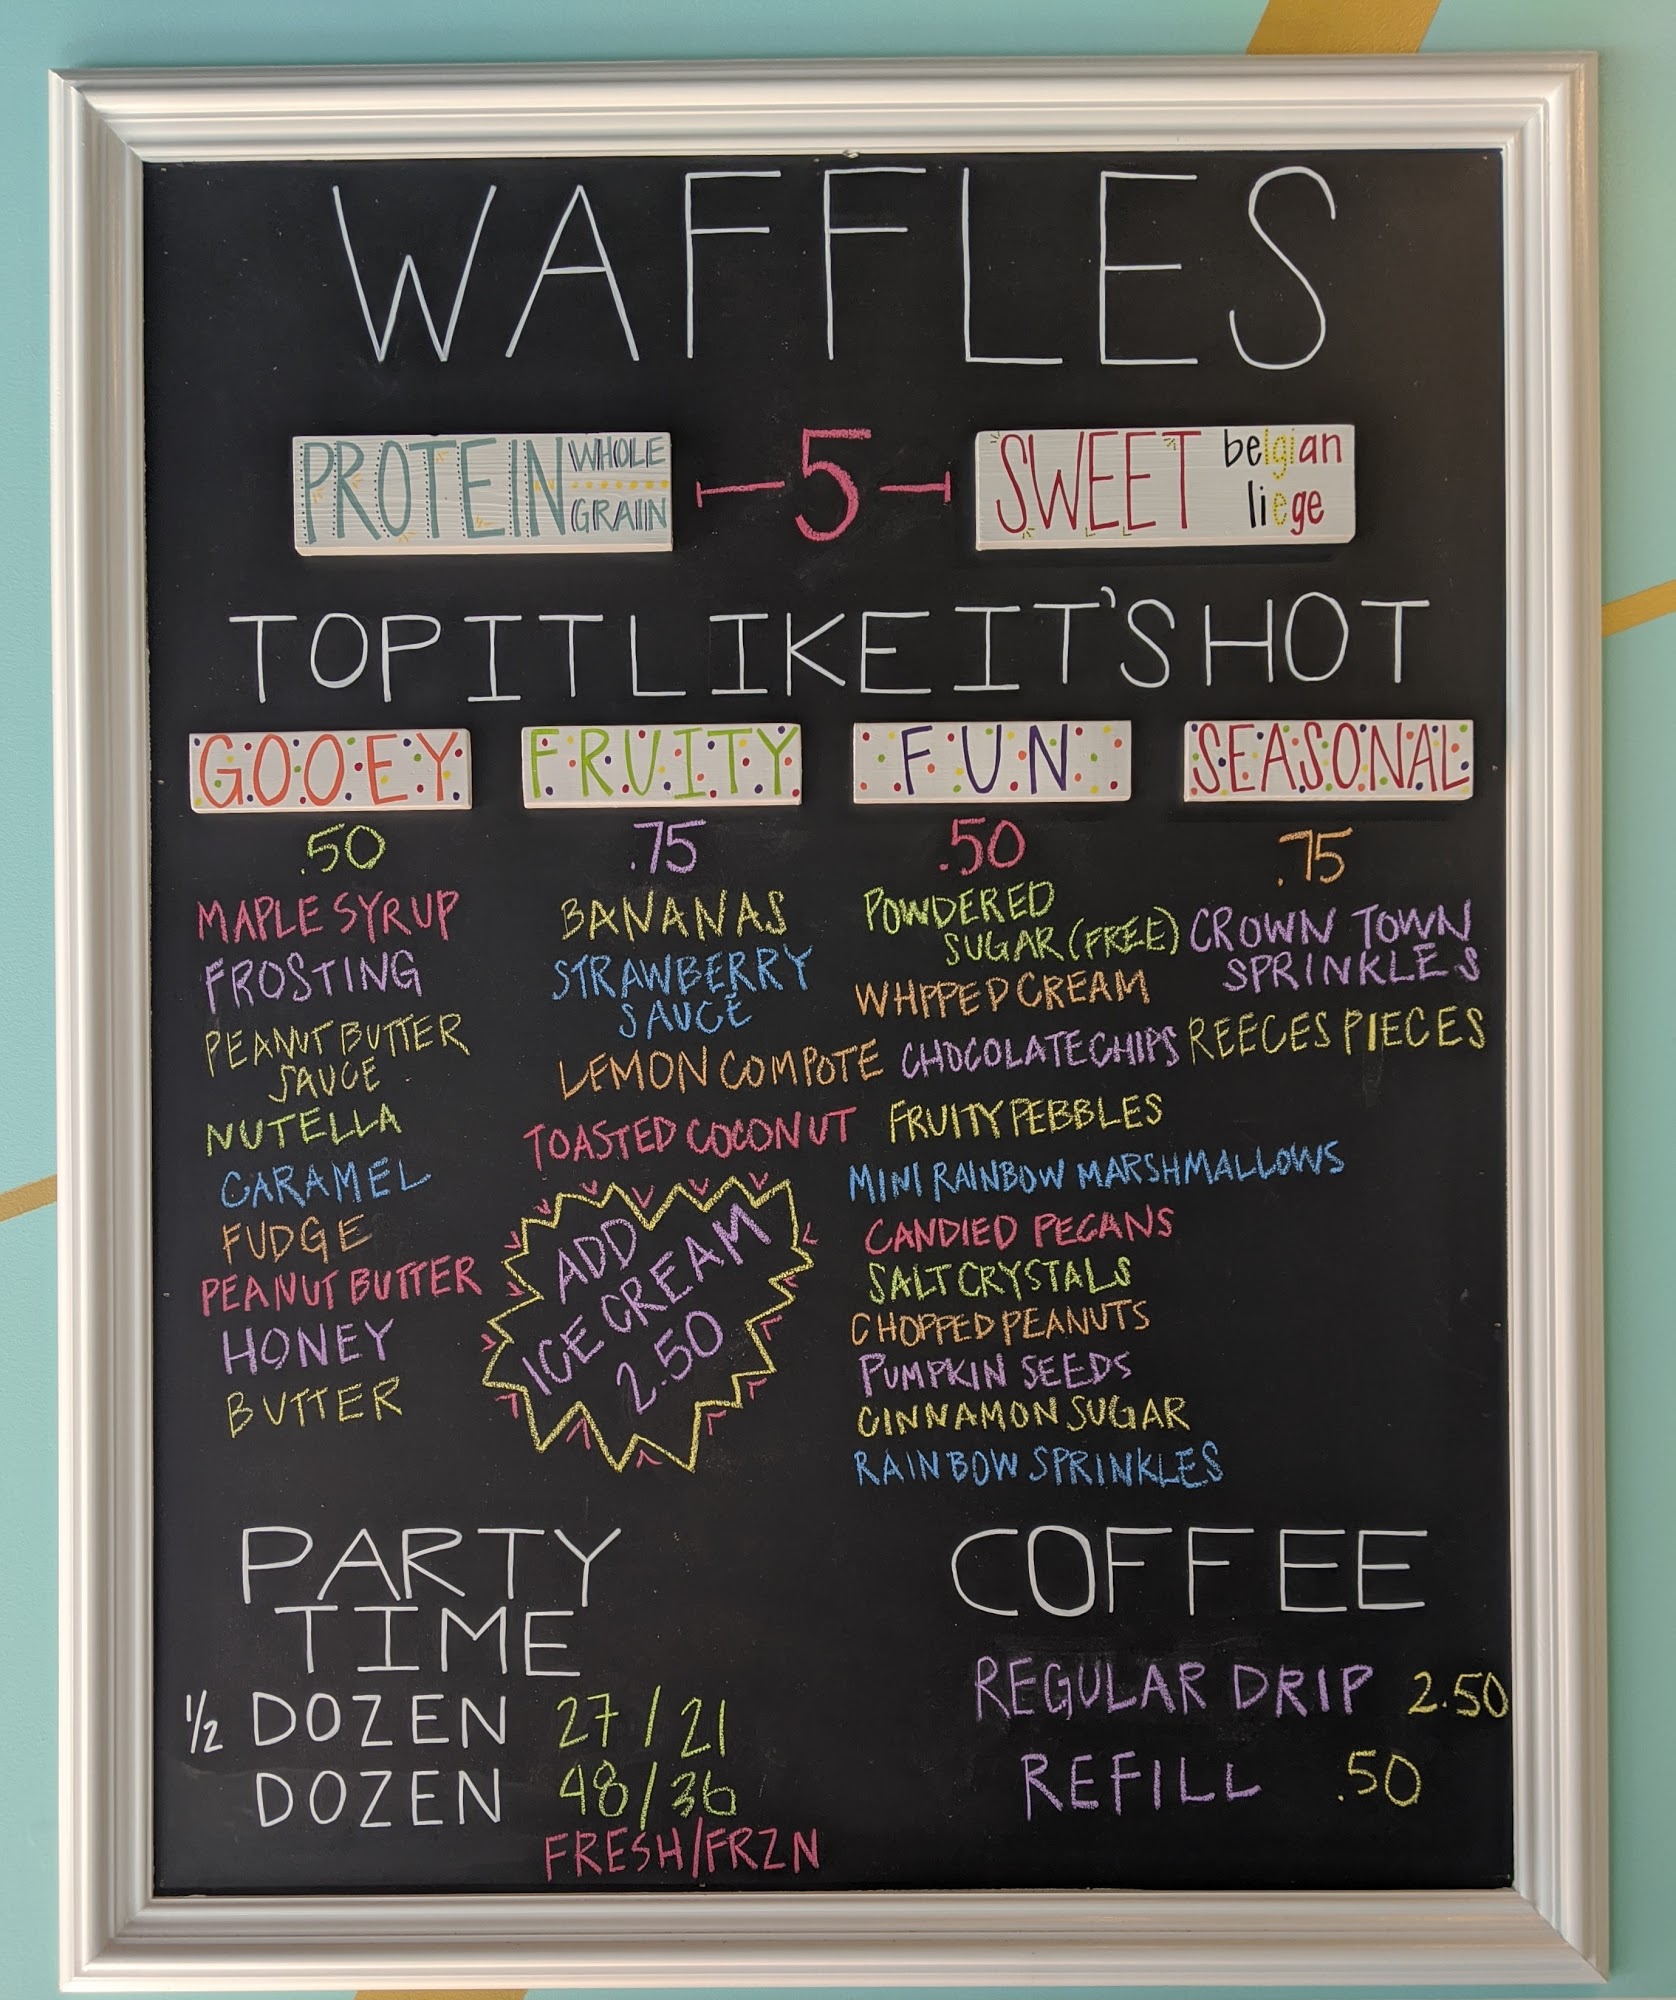 WAFFLES
PROTEIN WHOLE GRAIN
5
SWEET belgian liege
TOP IT LIKE IT'S HOT
GOOEY
.50
MAPLE SYRUP
FROSTING
PEANUT BUTTER
SAUCE
NUTELLA
CARAMEL
FUDGE
PEANUT BUTTER
HONEY
BUTTER
FRUITY
.75
BANANAS
STRAWBERRY
SAUCE
LEMON COMPOTE
TOASTED COCONUT
ADD
ICE CREAM
2.50
FUN
.50
POWDERED
SUGAR (FREE)
WHPPED CREAM
CHOCOLATE CHIPS
FRUITY PEBBLES
MINI RAINBOW MARSHMALLOWS
CANDIED PECANS
SALT CRYSTALS
CHOPPED PEANUTS
PUMPKIN SEEDS
CINNAMON SUGAR
RAINBOW SPRINKLES
SEASONAL
.75
CROWN TOWN
SPRINKLES
REECES PIECES
PARTY
TIME
1/2 DOZEN 27/21
DOZEN 48/36
FRESH/FRZN
COFFEE
REGULAR DRIP 2.50
REFILL .50